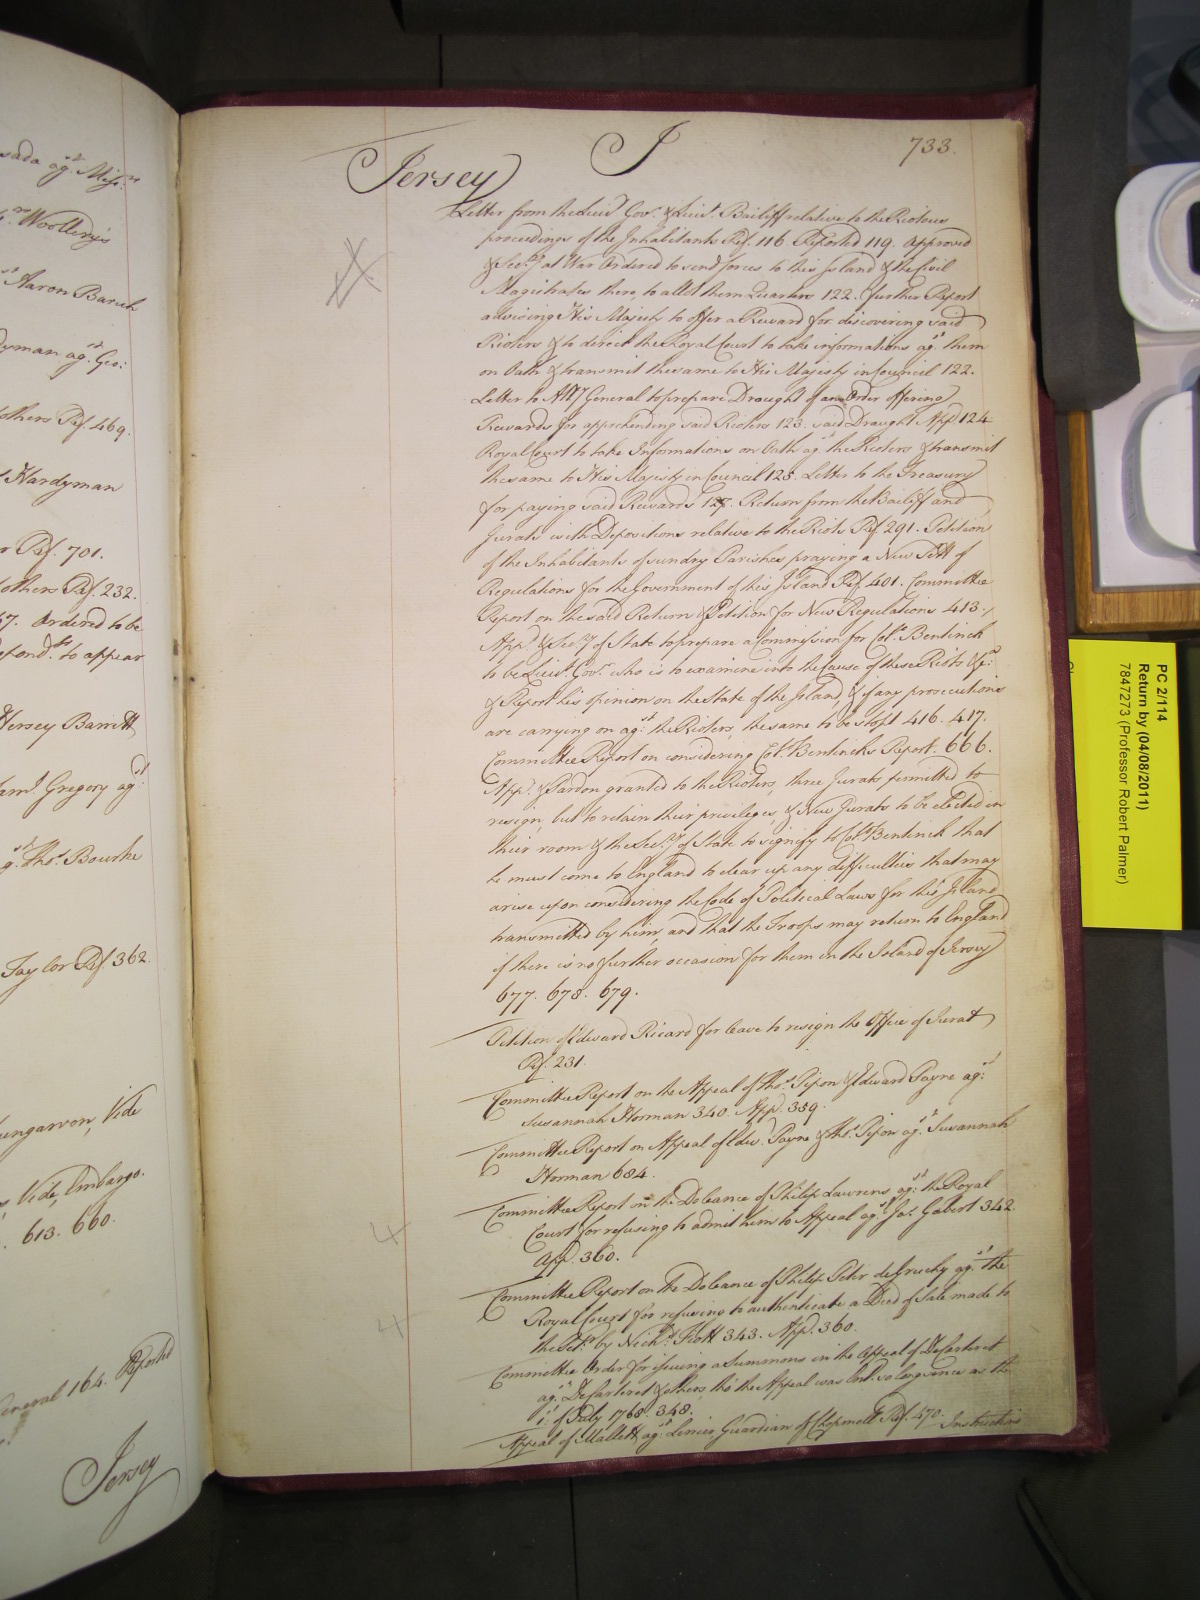 sada ag.st Miss.rs
Woollery's
Aaron Baruch
dyman ag.st Geo:
others Ref. 469.
Hardyman
Ref. 701.
others Ref. 232.
Ordered to be
to appear
Hersey Barrett
Gregory ag.st
Tho.s Bourke
Taylor Ref. 362.
Vide
Vide, Embargo.
613. 660.
General 164. Reported
Jersey
J
733.
Jersey
Letter from the Lieut. Gov.r & Lieu.t Bailiff relative to the Riotous
proceedings of the Inhabitants Ref. 116 Reported 119. Approved
& Sec.ry at War Ordered to send forces to this Island & the Civil
Magistrates there, to allot them Quarters 122. further Report
advising His Majesty to offer a Reward for discovering said
Rioters & to direct the Royal Court to take informations ag.st them
on Oath & transmit the same to His Majesty in Council 122.
Letter to Att.y General to prepare Draught of an Order offering
Rewards for apprehending said Rioters 123. said Draught App.d 124
Royal Court to take Informations on Oath ag.st the Rioters & transmit
the same to His Majesty in Council 125. Letter to the Treasury
for paying said Rewards 127. Return from the Bailiff and
Jurats with Depositions relative to the Riots Ref. 291. Petition
of the Inhabitants of sundry Parishes praying a New Sett of
Regulations for the Government of this Island Ref. 401. Committee
Report on the said Return & Petition for New Regulations 413.
App.d & Sec.ry of State to prepare a Commission for Col.o Bentinck
to be Lieu.t Gov.r who is to examine into the Cause of these Riots &c.a
& Report his opinion on the State of the Island, & if any prosecutions
are carrying on ag.st the Rioters, the same to be stopt 416. 417.
Committee Report on considering Col.o Bentinck's Report. 666.
App.d & Pardon granted to the Rioters, three Jurats permitted to
resign, but to retain their privileges, & New Jurats to be elected in
their room & the Sec.ry of State to signify to Col.o Bentinck that
he must come to England to clear up any difficulties that may
arise upon considering the Code of Political Laws for this Island
transmitted by him, and that the Troops may return to England
if there is no further occasion for them in the Island of Jersey
677. 678. 679.
Petition of Edward Ricard for leave to resign the Office of Jurat
Ref. 231.
Committee Report on the Appeal of Tho.s Pipon & Edward Payne ag.st
Susannah Horman 340. App.d 359.
Committee Report on Appeal of Edw.d Payne & Tho.s Pipon ag.st Susannah
Horman 684.
Committee Report on the Doleance of Philip Lawrens ag.st the Royal
Court for refusing to admit him to Appeal ag.st Ja.s Gabert 342.
App.d 360.
Committee Report on the Doleance of Philip Peter de Gruchy ag.st the
Royal Court for refusing to authenticate a Deed of Sale made to
the Pet.r by Nich.s Fiott 343. App.d 360.
Committee Order for issuing a Summons in the Appeal of DeCarteret
ag.st DeCarteret & others, tho' the Appeal was Ent.d so long since as the
1.st of July 1768. 348.
Appeal of Mallett ag.st Guardian of Ref. 470. Instructions
PC 2/114
Return by (04/08/2011)
7847273 (Professor Robert Palmer)